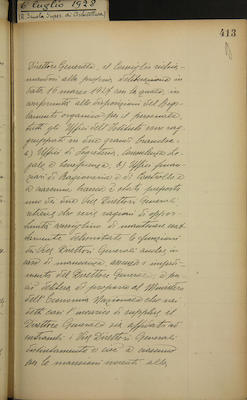 6 luglio 1928
(R. Scuola Super. di Architettura)
413
Direttore Generale, il Consiglio richia-
mandosi alla propria deliberazione in
data 16 marzo 1927 con la quale, in
conformità alle disposizioni del Rego-
lamento organico per il personale,
tutti gli Uffici dell'Istituto sono rag-
gruppati in due grandi branche:
a) Uffici di Segreteria, Consulenza le-
gale e beneficenza, b) Uffici finan-
ziari di Ragioneria e di Controllo e
a ciascuna branca è stato preposto
uno dei due Vice Direttori Generali
ritiene che serie ragioni di oppor-
tunità consiglino di mantenere net-
tamente
dei Vice Direttori Generali anche in
caso di mancanza assenza o impedi-
mento del Direttore Generale, e per-
ciò delibera di proporre al Ministero
dell'Economia Nazionale che nei
detti casi l'incarico di supplire il
Direttore Generale sia affidato ad
entrambi i Vice Direttori Generali
distintamente e cioè a ciascuno
per le mansioni inerenti alla